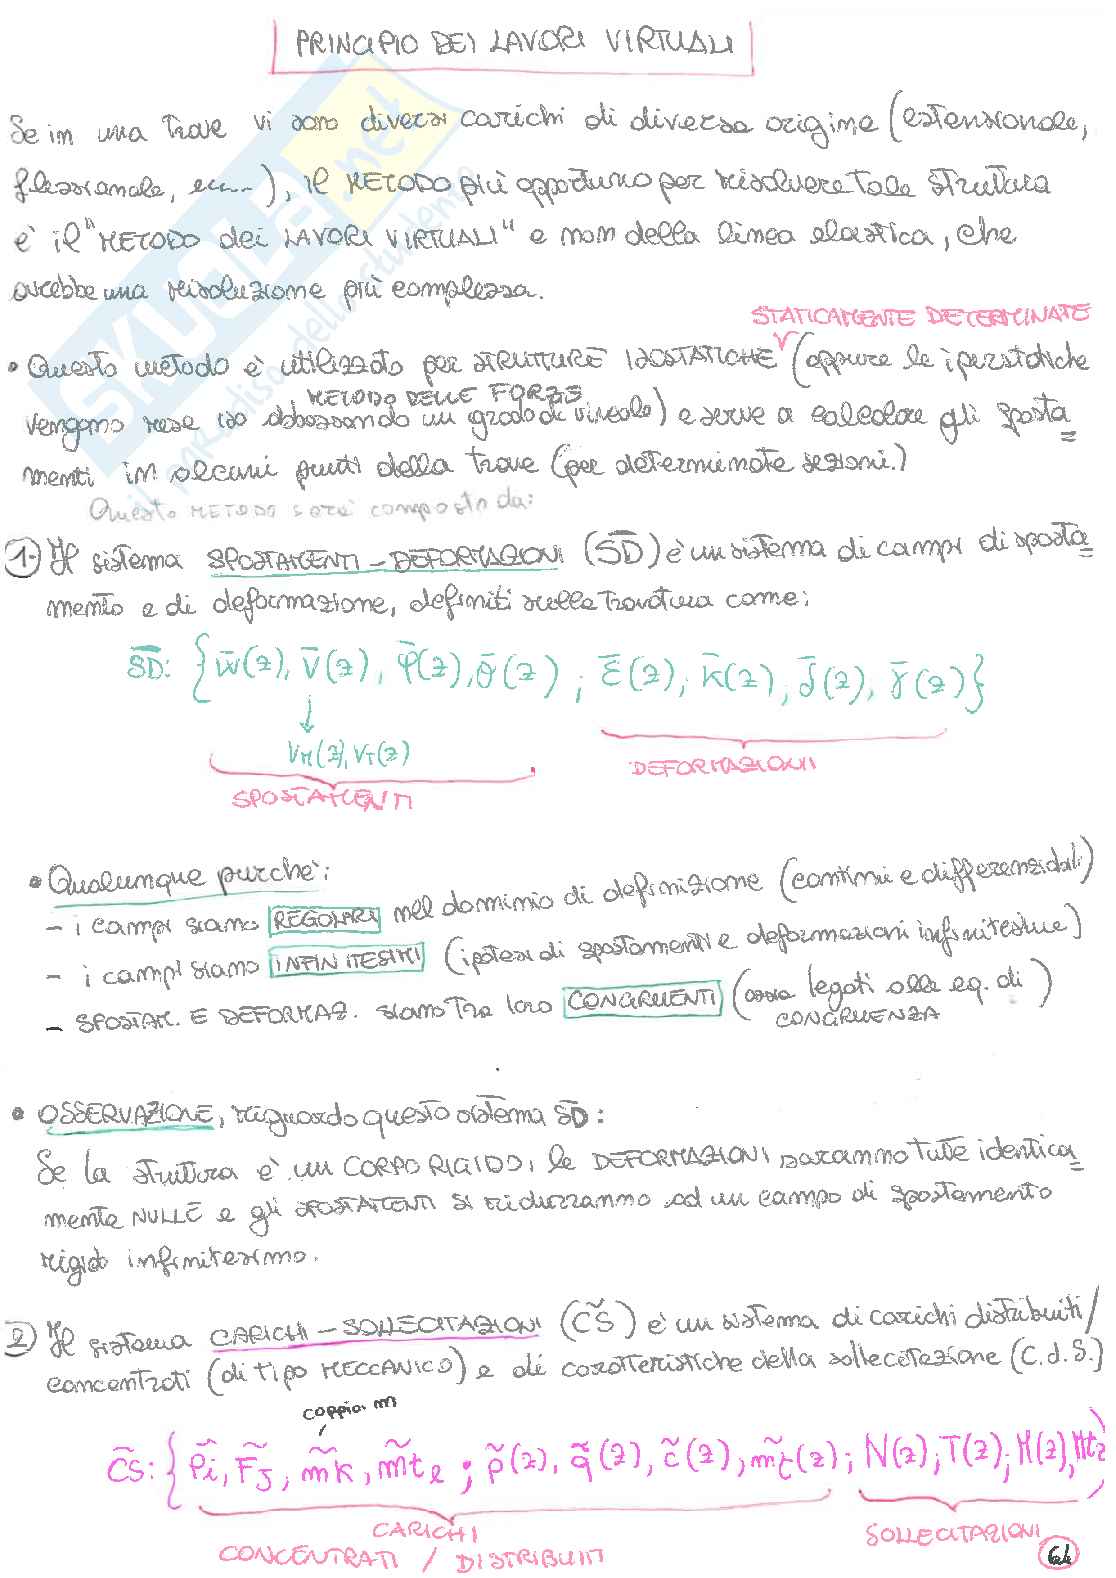 PRINCIPIO DEI LAVORI VIRTUALI
Se in una trave vi sono diversi carichi di diversa origine (estensionale,
flessionale, ecc...), il METODO più opportuno per risolvere tale struttura
è il "METODO dei LAVORI VIRTUALI" e non della linea elastica, che
avrebbe una risoluzione più complessa.
STATICAMENTE DETERMINATE
• Questo metodo è utilizzato per STRUTTURE ISOSTATICHE (oppure le iperstatiche
METODO DELLE FORZE
vengono rese iso abbassando un grado di vincolo) e serve a calcolare gli sposta
menti in alcuni punti della trave (per determinate sezioni.)
Questo METODO sarà composto da:
1- Il sistema SPOSTAMENTI - DEFORMAZIONI (S̄D̄) è un sistema di campi di sposta
mento e di deformazione, definiti sulla travatura come:
S̄D̄: { w̄(z), v̄(z), φ̄(z), θ̄(z) ; ε̄(z), k̄(z), j̄(z), γ̄(z) }
↓
V_M(z), V_T(z)
DEFORMAZIONI
SPOSTAMENTI
• Qualunque purchè:
- i campi siano REGOLARI nel dominio di definizione (continui e differenziabili)
- i campi siano INFINITESIMI (ipotesi di spostamenti e deformazioni infinitesime)
- SPOSTAM. E DEFORMAZ. siano tra loro CONGRUENTI (ossia legati alle eq. di CONGRUENZA)
• OSSERVAZIONE, riguardo questo sistema S̄D̄:
Se la struttura è un CORPO RIGIDO, le DEFORMAZIONI saranno tutte identica
mente NULLE e gli SPOSTAMENTI si ridurranno ad un campo di spostamento
rigido infinitesimo.
2) Il sistema CARICHI - SOLLECITAZIONI (C̃S̃) è un sistema di carichi distribuiti/
concentrati (di tipo MECCANICO) e di caratteristiche della sollecitazione (C.d.S.)
coppia m
C̃S̃: { P̃i, F̃j, m̃k, m̃tₑ ; p̃(z), q̃(z), c̃(z), m̃t(z) ; N(z), T(z), M(z), Mtz
CARICHI
CONCENTRATI / DISTRIBUITI
SOLLECITAZIONI
SKUOLA.net
il paradiso dello studente